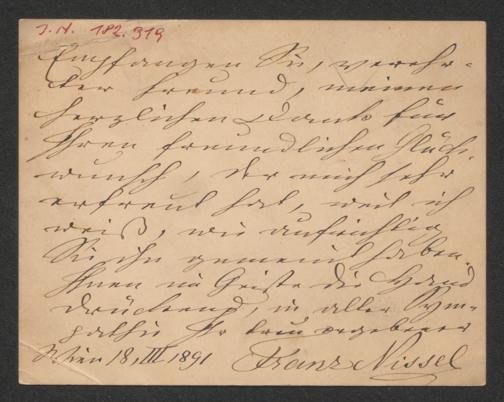 J.N. 182.919
Empfangen Sie, verehr-
ter Freund, meinen
herzlichen Dank für
Ihren freundlichen Glück-
wunsch, der mich sehr
erfreut hat, weil ich
weiß, wie aufrichtig
Sie ihn gemeint haben.
Ihnen im Geiste die Hand
drückend, in aller Sym-
pathie Ihr treu ergebener
Wien 18. III. 1891 Franz Nissel